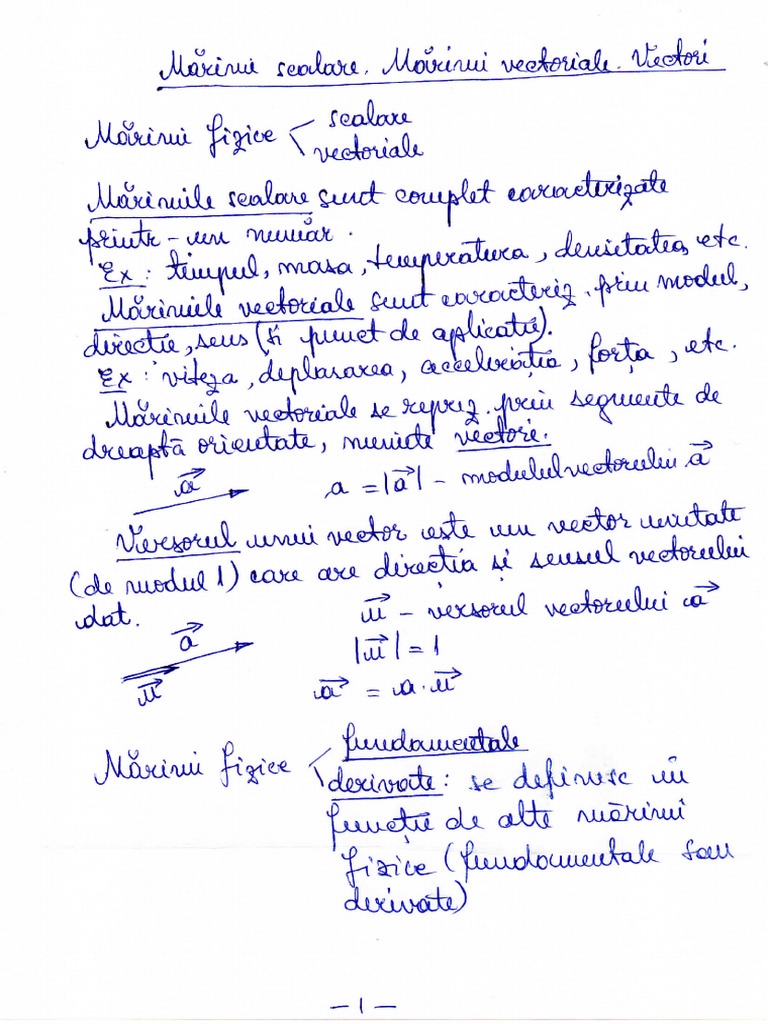 Mărimi scalare. Mărimi vectoriale. Vectori
Mărimi fizice < scalare
vectoriale
Mărimile scalare sunt complet caracterizate
printr-un număr.
Ex: timpul, masa, temperatura, densitatea, etc.
Mărimile vectoriale sunt caracteriz. prin modul,
direcție, sens (și punct de aplicație).
Ex: viteza, deplasarea, accelerația, forța, etc.
Mărimile vectoriale se reprez. prin segmente de
dreaptă orientate, numite vectori.
a⃗ a = |a⃗| - modulul vectorului a⃗
Versorul unui vector este un vector unitate
(de modul 1) care are direcția și sensul vectorului
dat. u⃗ - versorul vectorului a⃗
a⃗ |u⃗| = 1
u⃗ a⃗ = a·u⃗
Mărimi fizice < fundamentale
derivate: se definesc în
funcție de alte mărimi
fizice (fundamentale sau
derivate)
- 1 -